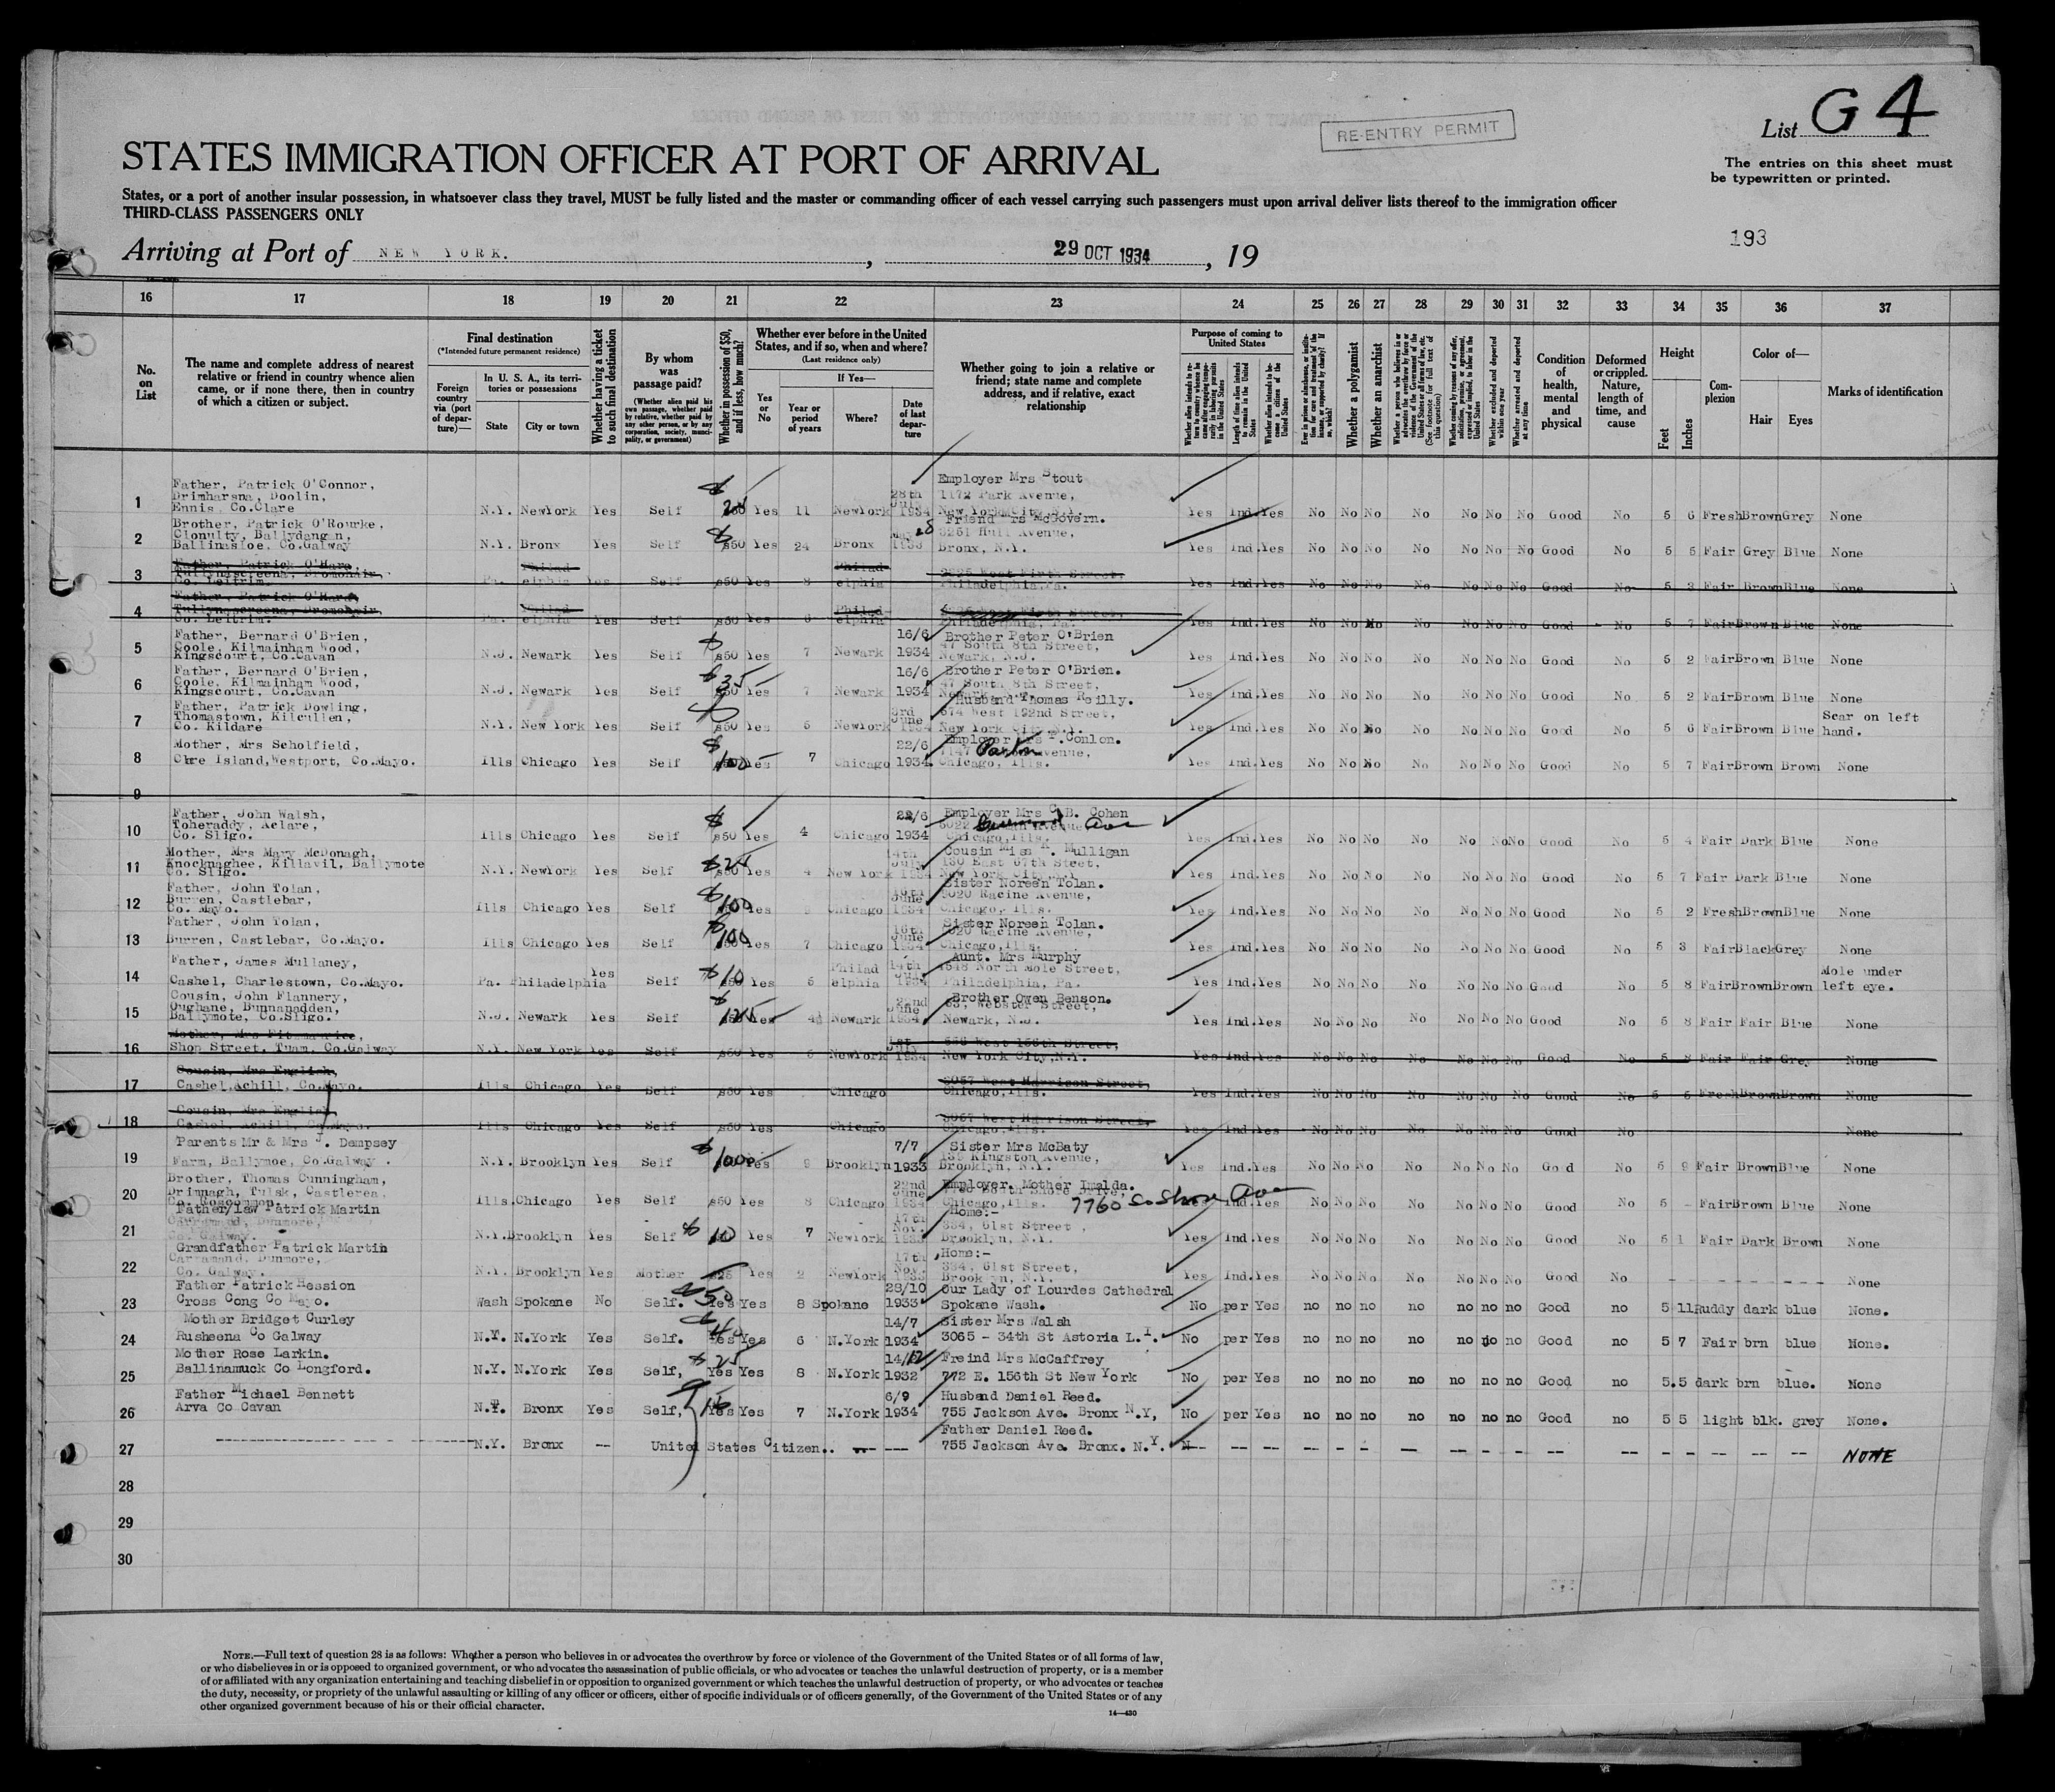 RE-ENTRY PERMIT
List G 4
STATES IMMIGRATION OFFICER AT PORT OF ARRIVAL
The entries on this sheet must
be typewritten or printed.
States, or a port of another insular possession, in whatsoever class they travel, MUST be fully listed and the master or commanding officer of each vessel carrying such passengers must upon arrival deliver lists thereof to the immigration officer
THIRD-CLASS PASSENGERS ONLY
193
Arriving at Port of NEW YORK. , 29 OCT 1934 , 19
16 17 18 19 20 21 22 23 24 25 26 27 28 29 30 31 32 33 34 35 36 37
No. on List
The name and complete address of nearest
relative or friend in country whence alien
came, or if none there, then in country
of which a citizen or subject.
Final destination
(*Intended future permanent residence)
Foreign country via (port of departure)—
In U. S. A., its territories or possessions
State
City or town
Whether having a ticket to such final destination
By whom was passage paid?
(Whether alien paid his own passage, whether paid by relative, whether paid by any other person, or by any corporation, society, municipality, or government)
Whether in possession of $50, and if less, how much?
Whether ever before in the United
States, and if so, when and where?
(Last residence only)
Yes or No
If Yes—
Year or period of years
Where?
Date of last departure
Whether going to join a relative or
friend; state name and complete
address, and if relative, exact
relationship
Purpose of coming to United States
Whether a polygamist
Whether an anarchist
Condition of health, mental and physical
Deformed or crippled. Nature, length of time, and cause
Height
Feet
Inches
Complexion
Color of—
Hair
Eyes
Marks of identification
1 Father, Patrick O'Connor, Doolin, Ennis, Co.Clare N.Y. NewYork Yes Self Yes 11 NewYork 28th July 1934 Employer Mrs Stout 1172 Park Avenue, New York City, N.Y. Yes Ind. Yes No No No No No No No Good No 5 6 Fresh Brown Grey None
2 Brother, Patrick O'Rourke, Clonulty, Ballydangan, Ballinasloe, Co.Galway N.Y. Bronx Yes Self $50 Yes 24 Bronx 1933 Friend McGovern. 3251 Hull Avenue, Bronx, N.Y. Yes Ind. Yes No No No No No No No Good No 5 5 Fair Grey Blue None
3 Father, Patrick O'Hara, Co. Leitrim. Pa. Philadelphia Yes Self $50 Yes 8 Philadelphia Philadelphia, Pa. Yes Ind. Yes No No No No No No No Good No 5 3 Fair Brown Blue None
4 Father, Patrick O'Hara, Co. Leitrim. Pa. Philadelphia Yes Self $50 Yes 6 Philadelphia Philadelphia, Pa. Yes Ind. Yes No No No No No No No Good No 5 7 Fair Brown Blue None
5 Father, Bernard O'Brien, Coole, Kilmainham Wood, Kingscourt, Co.Cavan N.J. Newark Yes Self $50 Yes 7 Newark 16/6 1934 Brother Peter O'Brien 47 South 8th Street, Newark, N.J. Yes Ind. Yes No No No No No No No Good No 5 2 Fair Brown Blue None
6 Father, Bernard O'Brien, Coole, Kilmainham Wood, Kingscourt, Co.Cavan N.J. Newark Yes Self 35 Yes 7 Newark 16/6 1934 Brother Peter O'Brien. 47 South 8th Street, Newark, N.J. Yes Ind. Yes No No No No No No No Good No 5 2 Fair Brown Blue None
7 Father, Patrick Dowling, Thomastown, Kilcullen, Co. Kildare N.Y. New York Yes Self $50 Yes 5 NewYork 3rd June 1934 Husband Thomas Reilly. 574 West 192nd Street, New York City N.Y. Yes Ind. Yes No No No No No No No Good No 5 6 Fair Brown Blue Scar on left hand.
8 Mother, Mrs Scholfield, Clare Island, Westport, Co.Mayo. Ills Chicago Yes Self 100 Yes 7 Chicago 22/6 1934 Employer Mrs Conlon. 1147 Avenue, Chicago, Ills. Yes Ind. Yes No No No No No No No Good No 5 7 Fair Brown Brown None
9
10 Father, John Walsh, Toheraddy, Aclare, Co. Sligo. Ills Chicago Yes Self $50 Yes 4 Chicago 22/6 1934 Employer Mrs C.B. Cohen Ave Chicago, Ills. Yes Ind. Yes No No No No No No No Good No 5 4 Fair Dark Blue None
11 Mother, Mrs Mary McDonagh, Knocknaghee, Killavil, Ballymote Co. Sligo. N.Y. NewYork Yes Self Yes 4 New York July 1934 Cousin Miss Mulligan New York City Yes Ind. Yes No No No No No No No Good No 5 7 Fair Dark Blue None
12 Father, John Tolan, Burren, Castlebar, Co. Mayo. Ills Chicago Yes Self 100 Yes 9 Chicago 16th June 1934 Sister Noreen Tolan. 5020 Racine Avenue, Chicago, Ills. Yes Ind. Yes No No No No No No No Good No 5 2 Fresh Brown Blue None
13 Father, John Tolan, Burren, Castlebar, Co.Mayo. Ills Chicago Yes Self 100 Yes 7 Chicago 16th June 1934 Sister Noreen Tolan. 5020 Racine Avenue, Chicago, Ills. Yes Ind. Yes No No No No No No No Good No 5 3 Fair Black Grey None
14 Father, James Mullaney, Cashel, Charlestown, Co.Mayo. Pa. Philadelphia Yes Self $10 Yes 5 Philadelphia 14th 1934 Aunt. Mrs Murphy 4548 North Mole Street, Philadelphia, Pa. Yes Ind. Yes No No No No No No No Good No 5 8 Fair Brown Brown Mole under left eye.
15 Cousin, John Flannery, Oughane, Bunnanadden, Ballymote, Co.Sligo. N.J. Newark Yes Self 125 Yes 4½ Newark 22nd June 1934 Brother Owen Benson. 63, Webster Street, Newark, N.J. Yes Ind. Yes No No No No No No No Good No 5 8 Fair Fair Blue None
16 Mother, Mrs Fitzmaurice, Shop Street, Tuam, Co.Galway N.Y. New York Yes Self $50 Yes 5 NewYork 1934 West 156th Street, New York City, N.Y. Yes Ind. Yes No No No No No No No Good No 5 8 Fair Fair Grey None
17 Cousin, Mrs English, Cashel, Achill, Co.Mayo. Ills Chicago Yes Self $50 Yes Chicago 3057 West Harrison Street, Chicago, Ills. Yes Ind. Yes No No No No No No No Good No 5 5 Fresh Brown Brown None
18 Cousin, Mrs English, Cashel, Achill, Co.Mayo. Ills Chicago Yes Self $50 Yes Chicago 3057 West Harrison Street, Chicago, Ills. Yes Ind. Yes No No No No No No No Good No None
19 Parents Mr & Mrs J. Dempsey Farm, Ballymoe, Co.Galway. N.Y. Brooklyn Yes Self Yes 9 Brooklyn 7/7 1933 Sister Mrs McBaty 135 Kingston Avenue, Brooklyn, N.Y. Yes Ind. Yes No No No No No No No Good No 5 9 Fair Brown Blue None
20 Brother, Thomas Cunningham, Drimnagh, Tulsk, Castlerea, Co. Roscommon. Ills. Chicago Yes Self $50 Yes 8 Chicago 22nd June 1934 Employer. Mother Imelda. Chicago, Ills. 7760 So Shore Ave Yes Ind. Yes No No No No No No No Good No 5 - Fair Brown Blue None
21 Father/law Patrick Martin Carramand, Dunmore, Co. Galway. N.Y. Brooklyn Yes Self $ 10 Yes 7 NewYork 17th Nov. 1933 Home:- 334, 61st Street, Brooklyn, N.Y. Yes Ind. Yes No No No No No No No Good No 5 1 Fair Dark Brown None
22 Grandfather Patrick Martin Carramand, Dunmore, Co. Galway. N.Y. Brooklyn Yes Mother Yes 2 NewYork 17th Nov. 1933 Home:- 334, 61st Street, Brooklyn, N.Y. Yes Ind. Yes No No No No No No No Good No - - - - - - - - None
23 Father Patrick Hession Cross Cong Co Mayo. Wash Spokane No Self. 50 Yes Yes 8 Spokane 28/10 1933 Our Lady of Lourdes Cathedral Spokane Wash. No per Yes no no no no no no no Good no 5 11 Ruddy dark blue None.
24 Mother Bridget Curley Rusheena Co Galway N.Y. N.York Yes Self. Yes Yes 6 N.York 14/7 1934 Sister Mrs Walsh 3065 - 34th St Astoria L.I. No per Yes no no no no no no no Good no 5 7 Fair brn blue None.
25 Mother Rose Larkin. Ballinamuck Co Longford. N.Y. N.York Yes Self, $25 Yes Yes 8 N.York 14/12 1932 Freind Mrs McCaffrey 772 E. 156th St New York No per Yes no no no no no no no Good no 5.5 dark brn blue. None
26 Father Michael Bennett Arva Co Cavan N.Y. Bronx Yes Self, Yes Yes 7 N.York 6/9 1934 Husband Daniel Reed. 755 Jackson Ave. Bronx N.Y, No per Yes no no no no no no no Good no 5 5 light blk. grey None.
27 N.Y. Bronx -- United States Citizen.. Father Daniel Reed. 755 Jackson Ave. Bronx. N.Y. NONE
28
29
30
NOTE.—Full text of question 28 is as follows: Whether a person who believes in or advocates the overthrow by force or violence of the Government of the United States or of all forms of law,
or who disbelieves in or is opposed to organized government, or who advocates the assassination of public officials, or who advocates or teaches the unlawful destruction of property, or is a member
of or affiliated with any organization entertaining and teaching disbelief in or opposition to organized government or which teaches the unlawful destruction of property, or who advocates or teaches
the duty, necessity, or propriety of the unlawful assaulting or killing of any officer or officers, either of specific individuals or of officers generally, of the Government of the United States or of any
other organized government because of his or their official character.
14—430